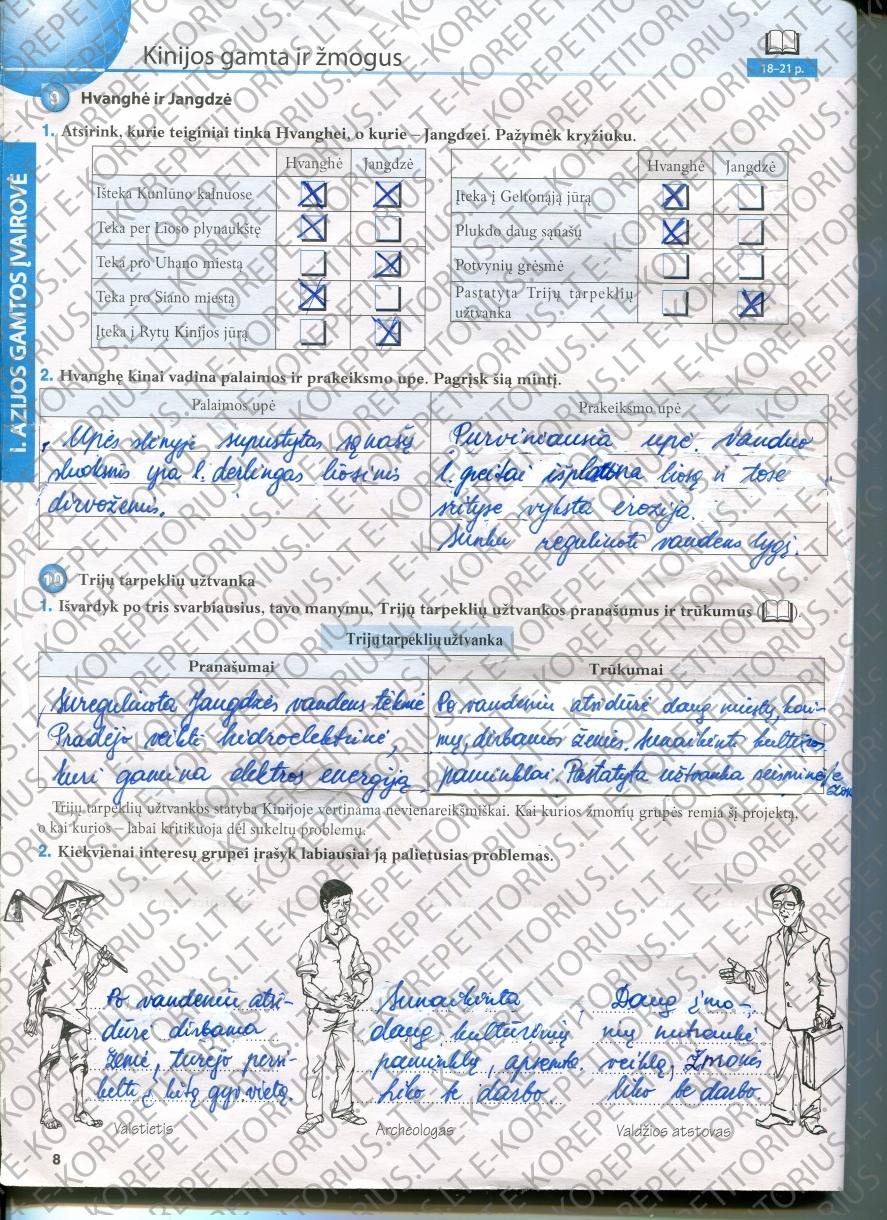 Kinijos gamta ir žmogus
18–21 p.
I. AZIJOS GAMTOS ĮVAIROVĖ
9 Hvanghė ir Jangdzė
1. Atsirink, kurie teiginiai tinka Hvanghei, o kurie – Jangdzei. Pažymėk kryžiuku.
Hvanghė Jangdzė
Išteka Kunlūno kalnuose
Teka per Lioso plynaukštę
Teka pro Uhano miestą
Teka pro Siano miestą
Įteka į Rytų Kinijos jūrą
Hvanghė Jangdzė
Įteka į Geltonąją jūrą
Plukdo daug sąnašų
Potvynių grėsmė
Pastatyta Trijų tarpeklių
užtvanka
2. Hvanghę kinai vadina palaimos ir prakeiksmo upe. Pagrįsk šią mintį.
Palaimos upė
Upės slėnyje supustytas sąnašų
sluoksnis yra l. derlingas liosinis
dirvožemis.
Prakeiksmo upė
Purviniausia upė. Vanduo
l. greitai išplauna liosą ir tose
srityse vyksta erozija.
Sunku reguliuoti vandens lygį.
10 Trijų tarpeklių užtvanka
1. Išvardyk po tris svarbiausius, tavo manymu, Trijų tarpeklių užtvankos pranašumus ir trūkumus ( ).
Trijų tarpeklių užtvanka
Pranašumai
Sureguliuota Jangdzės vandens tėkmė
Pradėjo veikti hidroelektrinė,
kuri gamina elektros energiją
Trūkumai
Po vandeniu atsidūrė daug miestų, kai-
mų, dirbamos žemės. Sunaikinti kultūros
paminklai. Pastatyta užtvanka seisminėje
zon
Trijų tarpeklių užtvankos statyba Kinijoje vertinama nevienareikšmiškai. Kai kurios žmonių grupės remia šį projektą,
o kai kurios – labai kritikuoja dėl sukeltų problemų.
2. Kiekvienai interesų grupei įrašyk labiausiai ją palietusias problemas.
Po vandeniu atsi-
dūrė dirbama
žemė, turėjo persi-
kelti į kitą gyv. vietą.
Valstietis
Sunaikinta
daug kultūrinių
paminklų, apsemta.
liko be darbo.
Archeologas
Daug įmo-
nių nutraukė
veiklą, žmonės
liko be darbo.
Valdžios atstovas
8
E-KOREPETITORIUS.LT